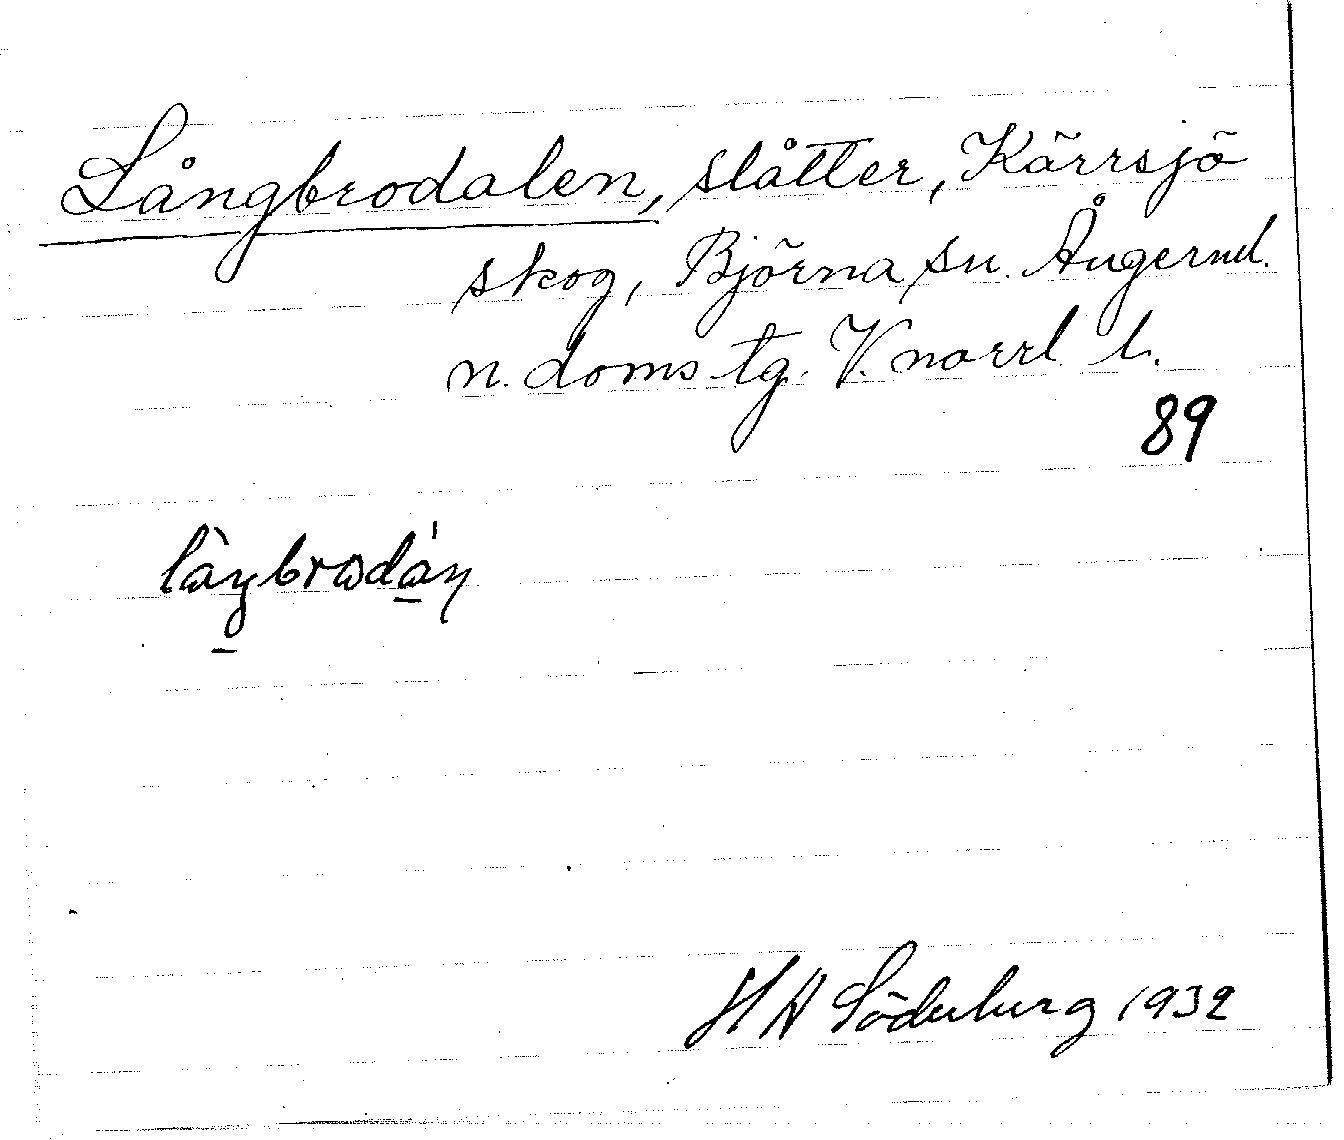 Långbrodalen, slåtter, Kärrsjö
skog, Björna sn. Ångerml.
n. doms. tg. V. norrl l.
89
H A Söderberg 1932